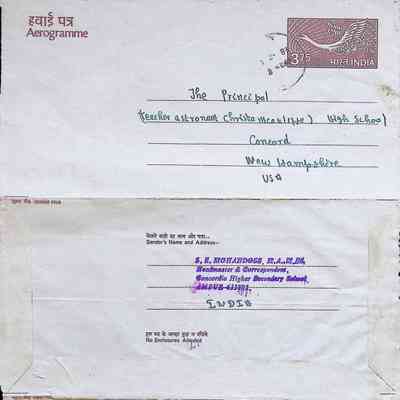 हवाई पत्र
Aerogramme
3.75
भारत INDIA
The Principal
(teacher astronaut Christa mcauliffe) High School
Concord
New Hampshire
USA
भेजने वाले का नाम और पता:-
Sender's Name and Address:-
S. E. MOHANDOSS, M.A., M.Ed.
Headmaster & Correspondent,
Concordia Higher Secondary School,
AMBUR-635802.
INDIA
इस पत्र के अन्दर कुछ न रखिये
No Enclosures Allowed